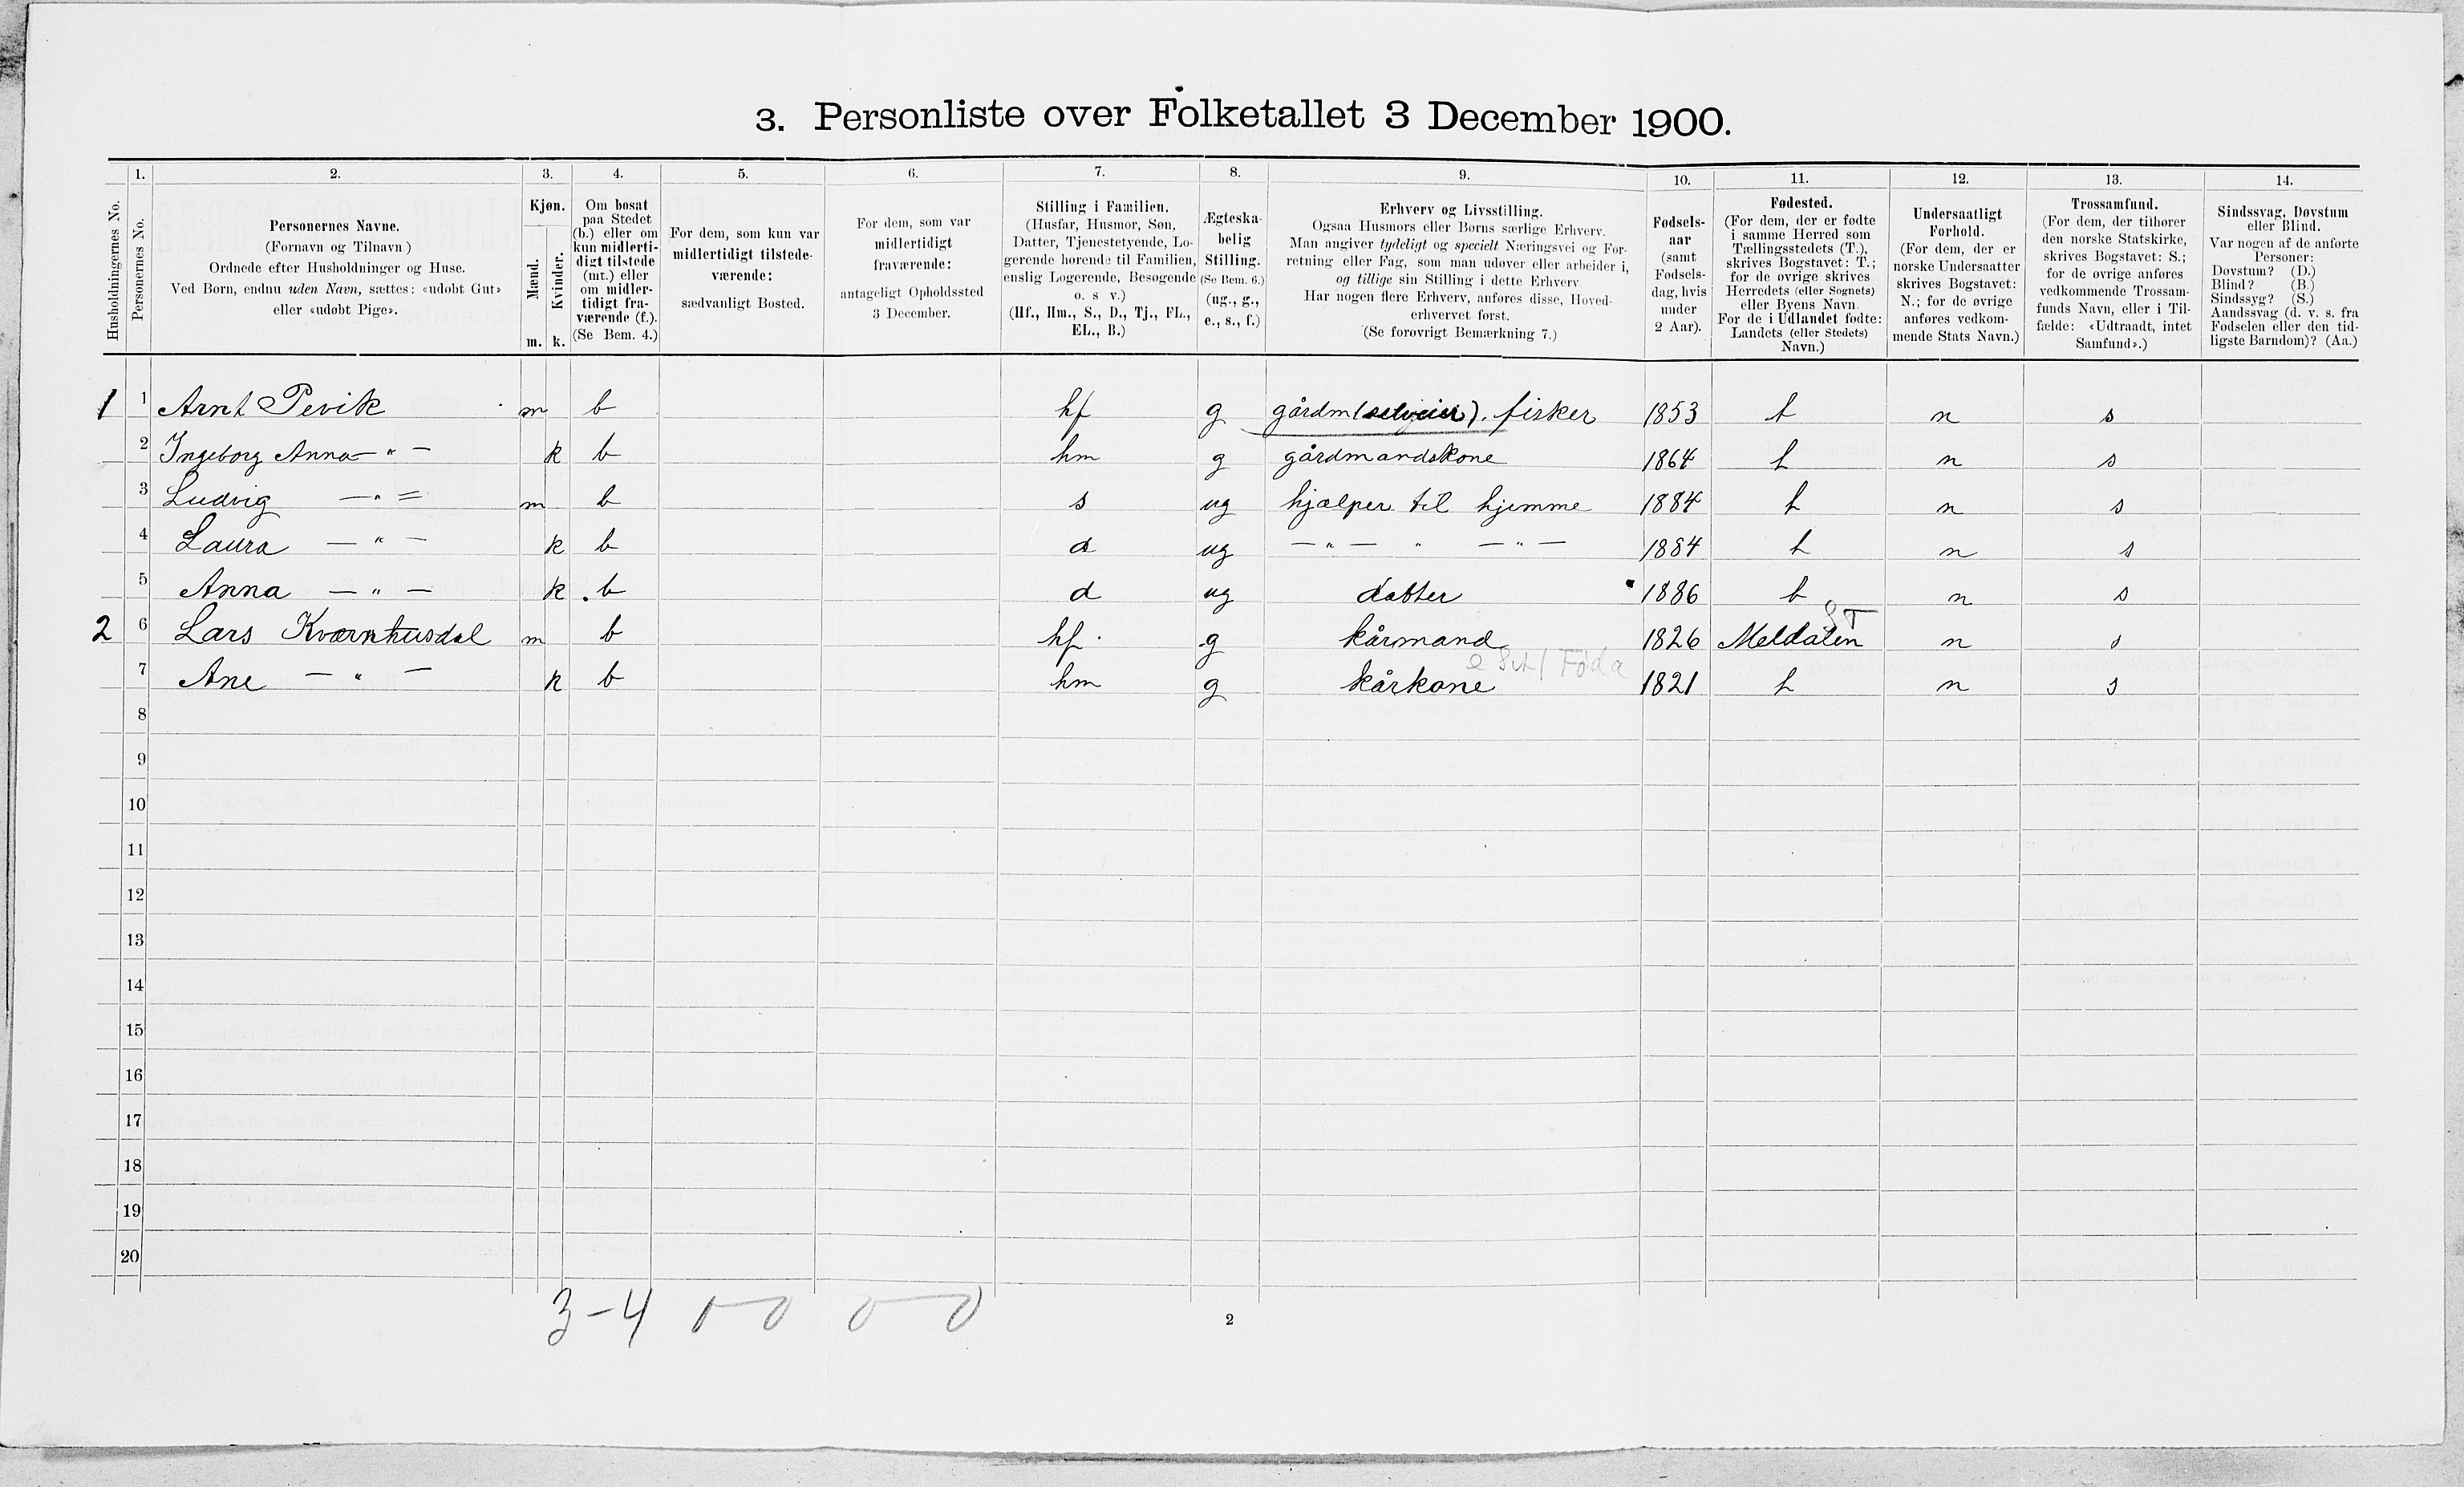 3. Personliste over Folketallet 3 December 1900.
1. 2. 3. 4. 5. 6. 7. 8. 9. 10. 11. 12. 13. 14.
Husholdningernes No.
Personernes No.
Personernes Navne.
(Fornavn og Tilnavn)
Ordnede efter Husholdninger og Huse.
Ved Børn, endnu uden Navn, sættes: «udøbt Gut»
eller «udøbt Pige».
Kjøn.
Mænd.
Kvinder.
m. k.
Om bosat
paa Stedet
(b.) eller om
kun midlerti-
digt tilstede
(mt.) eller
om midler-
tidigt fra-
værende (f.).
(Se Bem. 4.)
For dem, som kun var
midlertidigt tilstede-
værende:
sædvanligt Bosted.
For dem, som var
midlertidigt
fraværende:
antageligt Opholdssted
3 December.
Stilling i Familien.
(Husfar, Husmor, Søn,
Datter, Tjenestetyende, Lo-
gerende hørende til Familien,
enslig Logerende, Besøgende
o. s v.)
(Hf., Hm., S., D., Tj., FL.,
EL., B.)
Ægteska-
belig
Stilling.
(Se Bem. 6.)
(ug., g.,
e., s., f.)
Erhverv og Livsstilling.
Ogsaa Husmors eller Børns særlige Erhverv.
Man angiver tydeligt og specielt Næringsvei og For-
retning eller Fag, som man udøver eller arbeider i,
og tillige sin Stilling i dette Erhverv
Har nogen flere Erhverv, anføres disse, Hoved-
erhvervet først.
(Se forøvrigt Bemærkning 7.)
Fødsels-
aar
(samt
Fødsels-
dag, hvis
under
2 Aar).
Fødested.
(For dem, der er fødte
i samme Herred som
Tællingsstedets (T.),
skrives Bogstavet: T.;
for de øvrige skrives
Herredets (eller Sognets)
eller Byens Navn.
For de i Udlandet fødte:
Landets (eller Stedets)
Navn.)
Undersaatligt
Forhold.
(For dem, der er
norske Undersaatter
skrives Bogstavet:
N.; for de øvrige
anføres vedkom-
mende Stats Navn.)
Trossamfund.
(For dem, der tilhører
den norske Statskirke,
skrives Bogstavet: S.;
for de øvrige anføres
vedkommende Trossam-
funds Navn, eller i Til-
fælde: «Udtraadt, intet
Samfund».)
Sindssvag, Døvstum
eller Blind.
Var nogen af de anførte
Personer:
Døvstum? (D.)
Blind? (B.)
Sindssyg? (S.)
Aandssvag (d. v. s. fra
Fødselen eller den tid-
ligste Barndom)? (Aa.)
1 1 Arnt Pevik m b hf g gårdm (selveier). fisker 1853 t n s
2 Ingeborg Anna — " — k b hm g gårdmandskone 1864 t n s
3 Ludvig — " — m b s ug hjælper til hjemme 1884 t n s
4 Laura — " — k b d ug — " — " — " — 1884 t n s
5 Anna — " — k b d ug datter 1886 t n s
2 6 Lars Kværnhusdal m b hf g kårmand 1826 Meldalen ST n s
7 Ane — " — k b hm g kårkone 1821 t n s
8
9
10
11
12
13
14
15
16
17
18
19
20
3 – 4 0 – 0 0 – 0
2